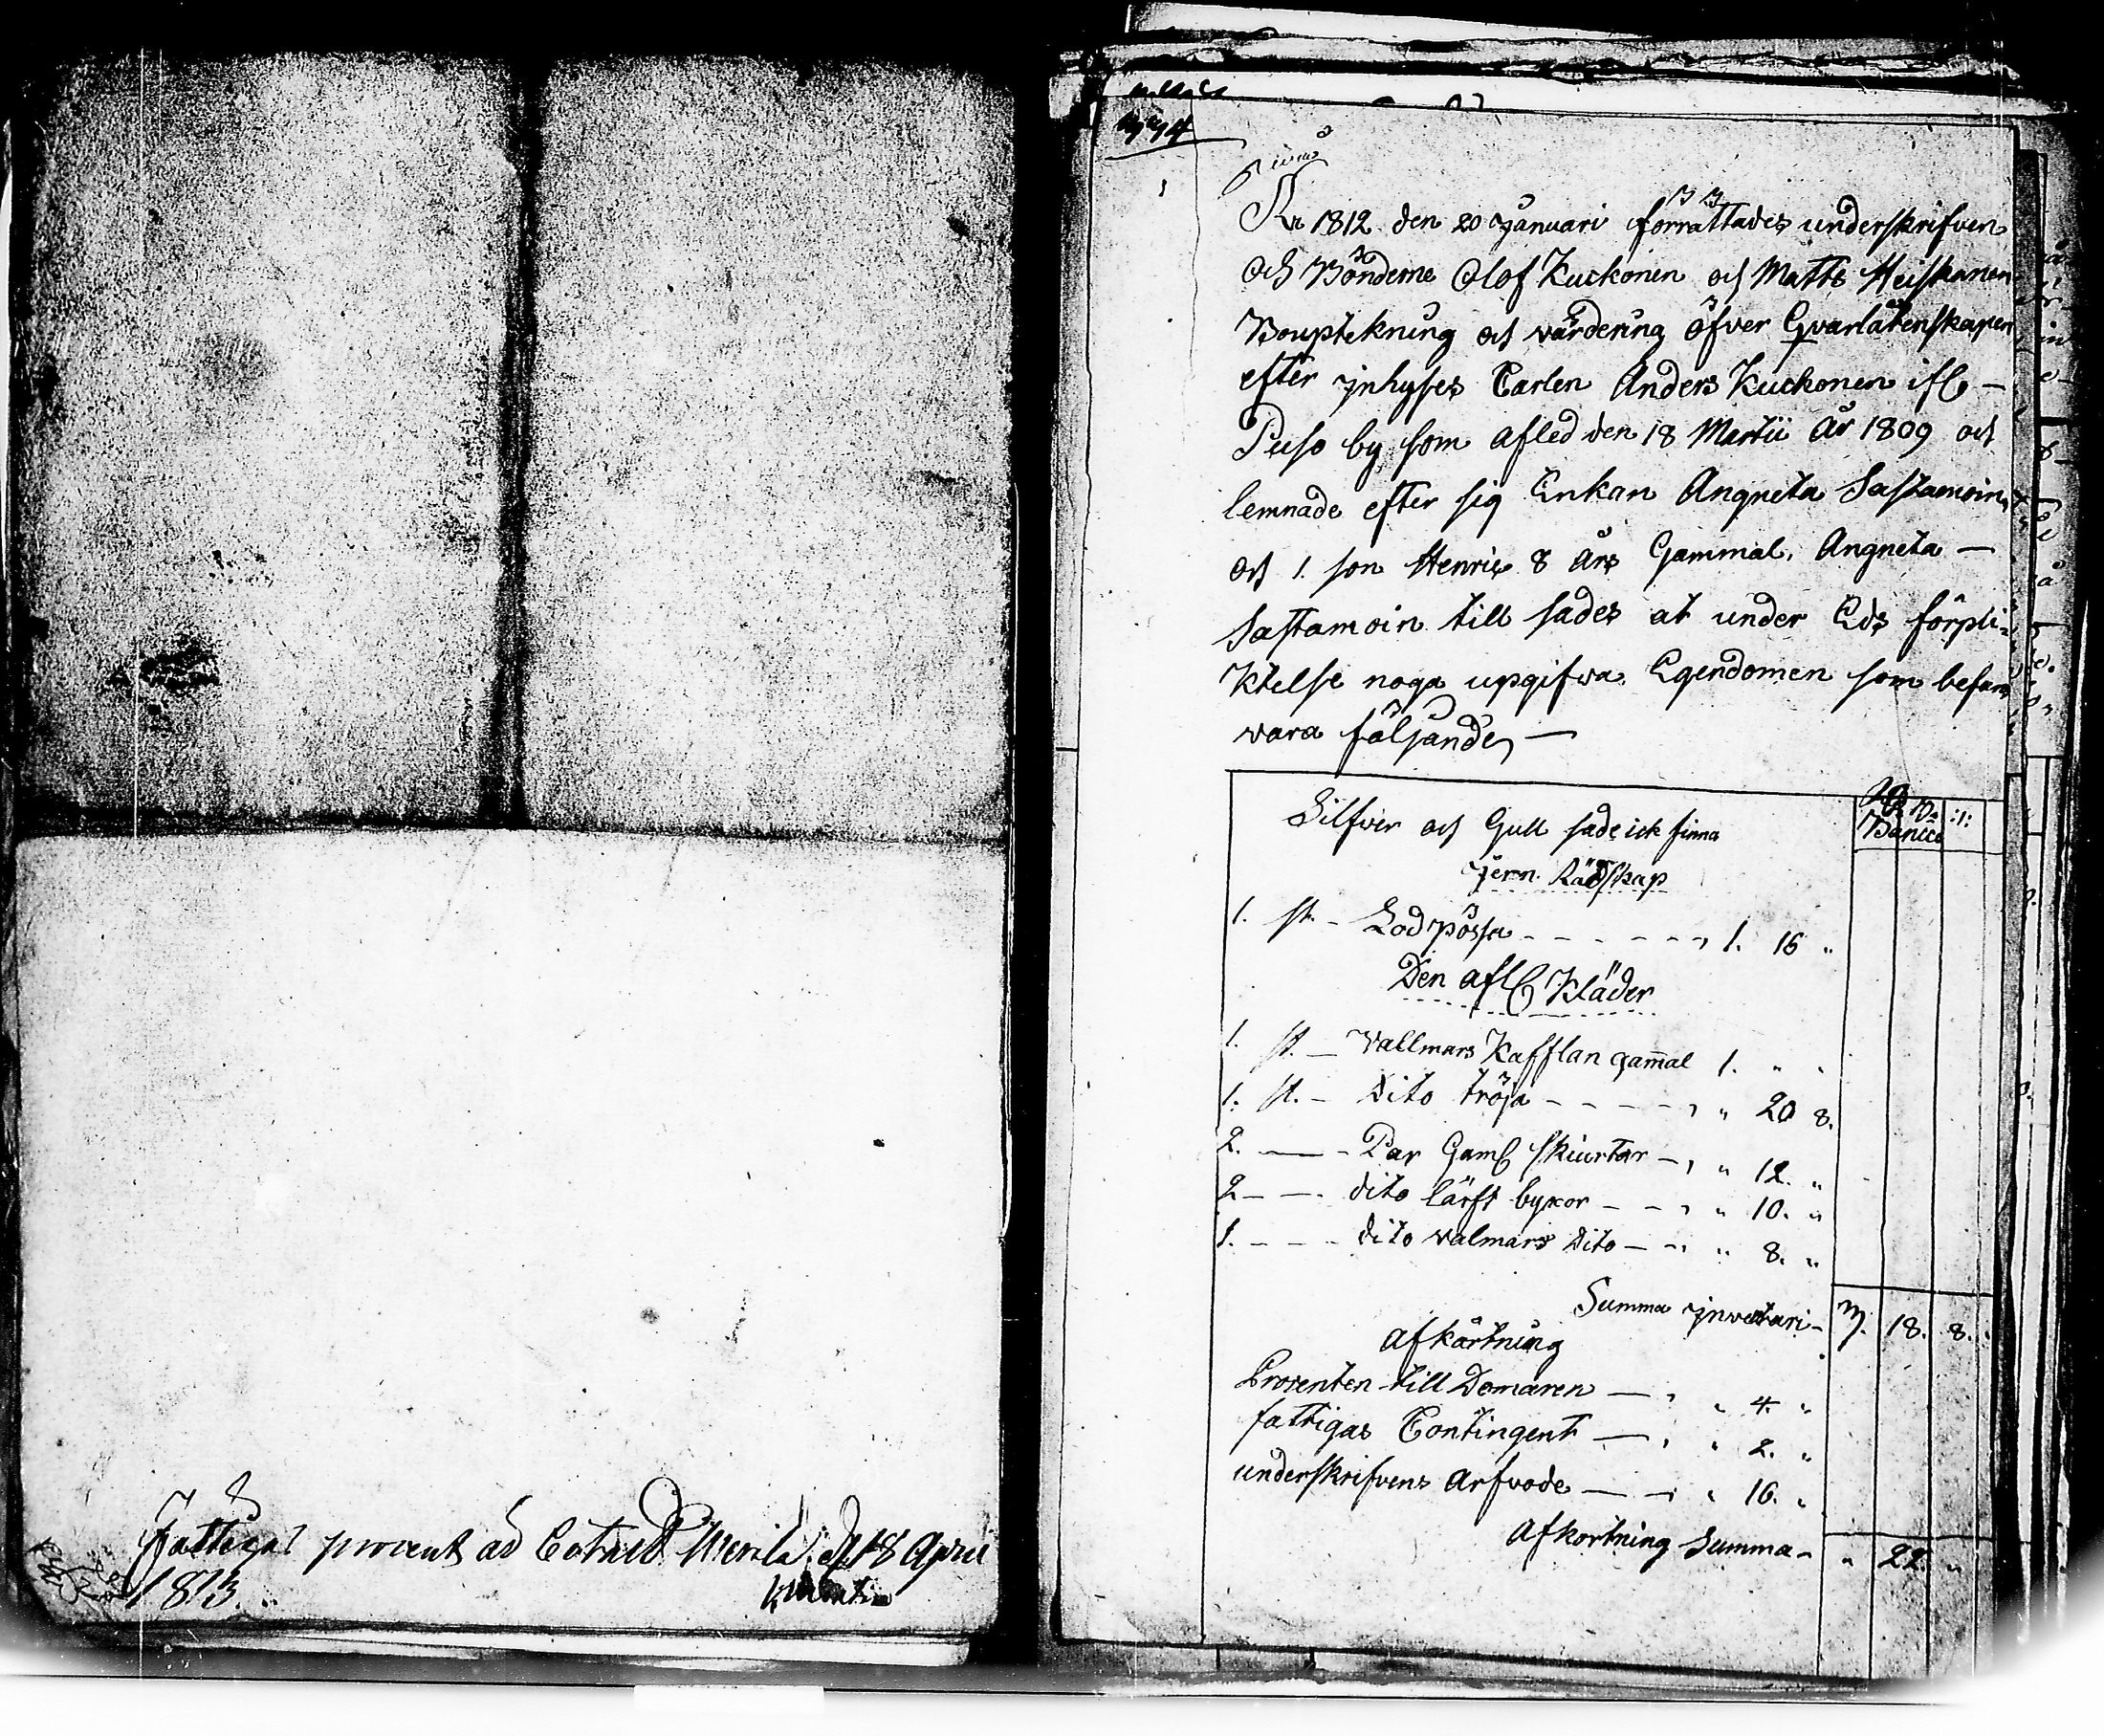 Fattigas procent ad den 18 April
1813.
År 1812 den 20 Januari förrättades underskrifven
och Bönderne Olof Kuckonen och Matts Heiskanen
Bouptekning och värdering öfver Qvarlåtenskapen
efter jnhyses Carlen Anders Kuckonen ifl –
Puso by som afled den 18 Martii år 1809 och
lemnade efter sig Enkan Angneta Sastamoin
och 1. son Henric 8 års Gammal, Angneta –
Sastamoin till sades at under Eds förpli=
ktelse noga upgifva Egendomen som befans
vara följande, –
Banco
Silfver och Gull sade ick finna
Jern Rädskap
1. st. – Lodpössa – – – – – – , 1. 16 "
Den afl Kläder
1. st. – vallmars Kafftan gam̄al 1. " "
1. st. – Dito tröja – – – – , " 20 8.
2. – – Par Gaml skiurtar – , " 12. "
2 – – . dito lärft byxor – – , " 10. "
1. – – – dito valmars dito – – , " 8. "
Summa jnventari – 3. 18. 8.
Afkårtning
Prosenten till Domaren – , " 4. "
fattigas Contingent – , " 2. "
underskrifvens Arfvode – – , " 16. "
Afkortning Summa – " 22. "